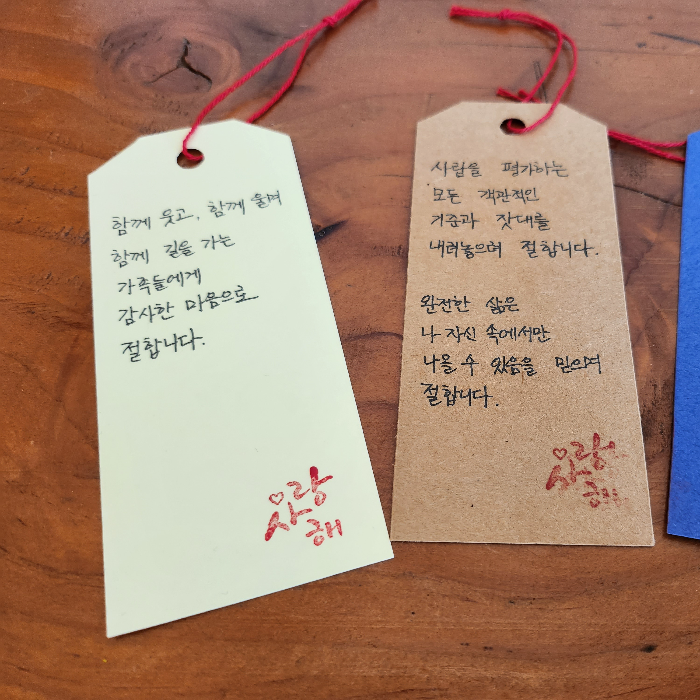 함께 웃고, 함께 울며
함께 길을 가는
가족들에게
감사한 마음으로
절합니다.
사랑
해
사람을 평가하는
모든 객관적인
기준과 잣대를
내려놓으며 절합니다.
완전한 삶은
나 자신 속에서만
나올 수 있음을 믿으며
절합니다.
사랑
해